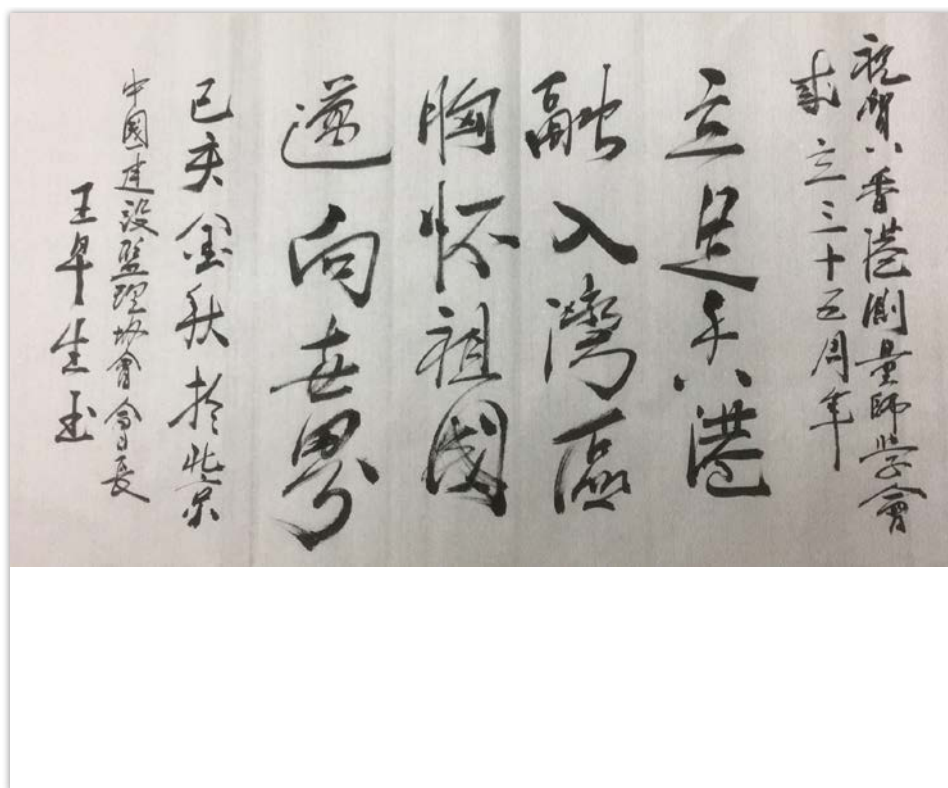 祝賀香港測量師學會
成立三十五周年
立足香港
融入灣區
胸怀祖國
邁向世界
己亥金秋於北京
中國建設監理協會會長
王早生